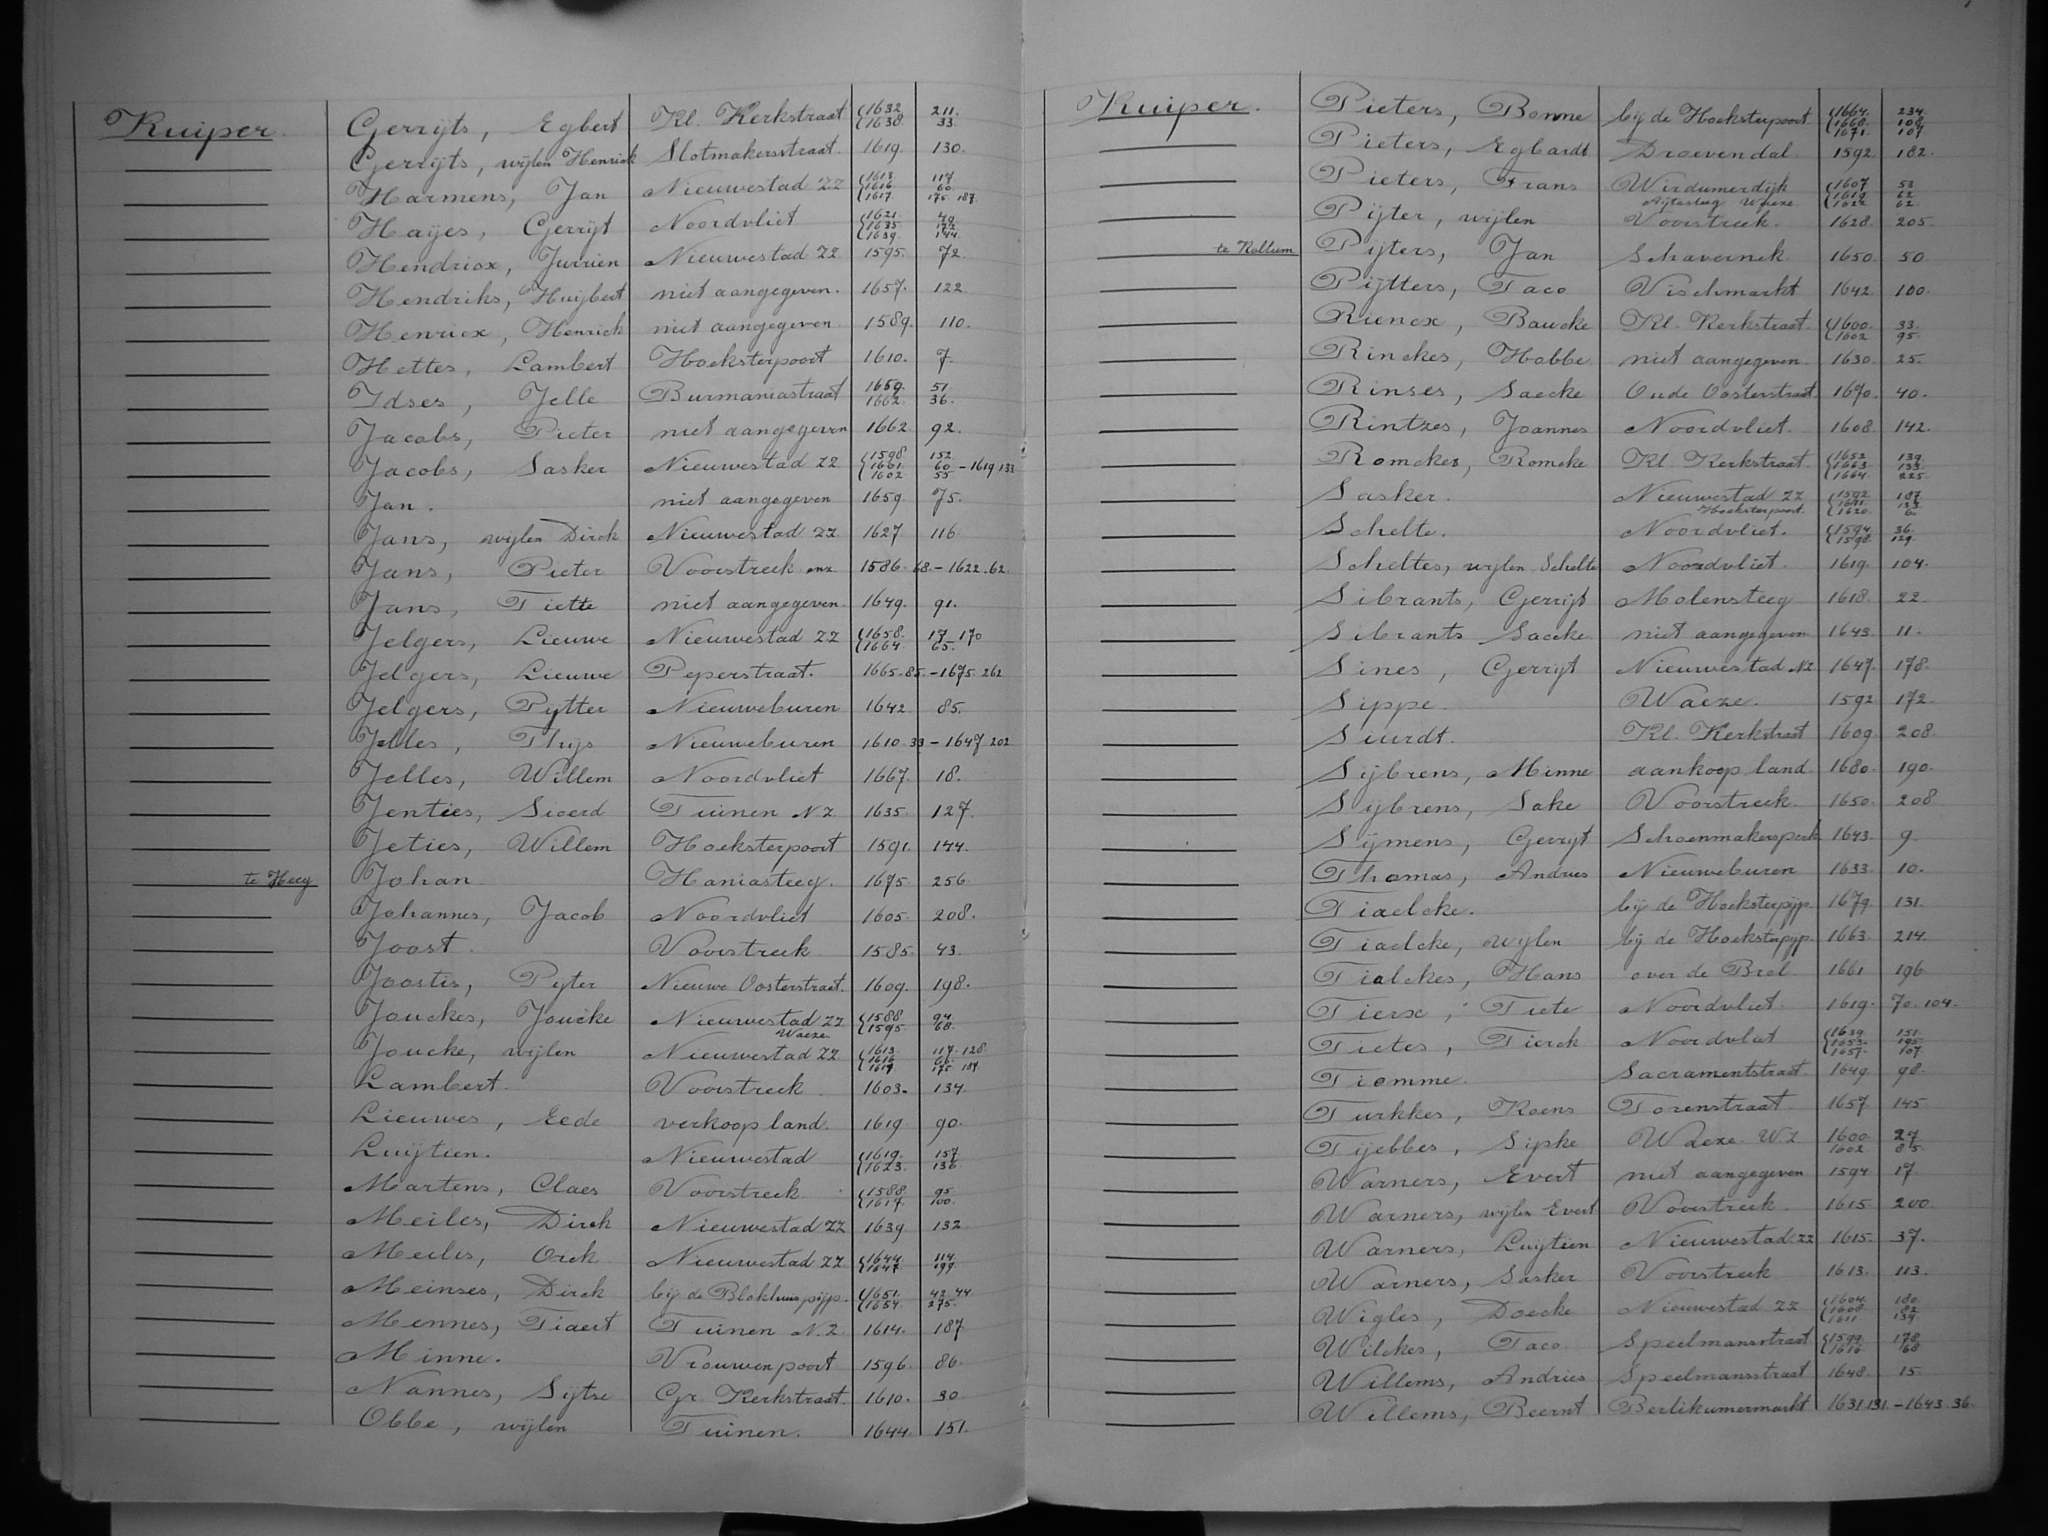 Kuiper. Gerrijts, Egbert Kl. Kerkstraat 1632 211.
1638 33.
Gerrijts, wijlen Henrick Slotmakersstraat. 1619. 130.
Harmens, Jan Nieuwestad ZZ 1613 117
1616 60
1617. 175 187.
Hayes, Gerrijt Noordvliet 1621.
1635
1639 144.
Hendriox, Jurrien Nieuwestad ZZ 1595. 72.
Hendriks, Huijbert niet aangegeven. 1657. 122
Henriox, Henrick niet aangegeven. 1589. 110.
Hettes, Lambert Hoeksterpoort 1610. 7.
Idses, Jelle Burmaniastraat 1659. 51.
1662. 36.
Jacobs, Pieter niet aangegeven 1662. 92.
Jacobs, Sasker Nieuwestad ZZ 1598 152
1601. 60 - 1619 133
1602 55
Jan. niet aangegeven 1659. 75.
Jans, wijlen Dirck Nieuwestad ZZ 1627 116
Jans, Pieter Voorstreek enz 1586. 68. - 1622. 62.
Jans, Tiette niet aangegeven. 1649. 91.
Jelgers, Lieuwe Nieuwestad ZZ 1658. 17 - 170
1664. 65.
Jelgers, Lieuwe Peperstraat. 1665. 85. - 1675. 262
Jelgers, Pytter Nieuweburen 1642. 85.
Jelles, Thijs Nieuweburen 1610. 33 - 1647 202
Jelles, Willem Noordvliet 1667. 18.
Jenties, Sioerd Tuinen NZ 1635. 127.
Jeties, Willem Hoeksterpoort 1591. 144.
te Heeg Johan. Haniasteeg. 1675. 256.
Johannes, Jacob Noordvliet 1605. 208.
Joost. Voorstreek. 1585. 43.
Joostis, Pyter Nieuwe Oosterstraat. 1609. 198.
Jouckes, Joucke Nieuwestad ZZ 1588 94.
Waeze. 1595. 68.
Joucke, wijlen Nieuwestad ZZ 1613. 117. 128.
1616 66.
1617. 175 187.
Lambert. Voorstreek 1603. 134.
Lieuwes, Eede verkoop land. 1619 90.
Luijtien. Nieuwestad 1619. 157
1623. 136
Martens, Claes Voorstreek 1588. 95
1617. 100.
Meiles, Dirck Nieuwestad ZZ 1639 132
Meiles, Orck Nieuwestad ZZ 1644. 114.
1647 199
Meinses, Dirck bij de Blokhuispijp. 1651. 42 44
1654. 275.
Mennes, Tiaert Tuinen N.Z. 1614. 187
Minne. Vrouwenpoort 1596. 86.
Nannes, Sijtse Gr. Kerkstraat. 1610. 30
Obbe, wijlen Tuinen. 1644. 151.
Kuiper. Pieters, Bonne bij de Hoeksterpoort. 1664. 234
1660. 108
1671. 107
Pieters, Egbardt Droevendal 1592 182.
Pieters, Frans Wirdumerdijk 1607 52
Waeze. 1619. 62
1622 62.
Pijter, wijlen Voorstreek. 1628. 205.
te Kollum Pijters, Jan Schavernek 1650 50
Pijtters, Taco Vischmarkt 1642. 100.
Rienox, Baucke Kl. Kerkstraat. 1600. 33.
1602 95.
Rinckes, Hobbe niet aangegeven. 1630. 25.
Rinses, Saecke Oude Oosterstraat 1670. 40.
Rintzes, Joannes Noordvliet. 1608. 142.
Romckes, Romcke Kl. Kerkstraat. 1652 139
1663. 133.
1664. 225
Sasker. Nieuwestad ZZ 1592 107.
Hoeksterpoort. 1620. 6.
Schelte. Noordvliet. 1594. 36.
1598 129.
Scheltes, wijlen Schelte Noordvliet. 1619. 104.
Sibrants, Gerrijt Molensteeg 1618. 22
Sibrants Saecke niet aangegeven 1643. 11.
Sines, Gerrijt Nieuwestad NZ 1647. 178.
Sippe. Waeze. 1592 172.
Siurdt. Kl. Kerkstraat 1609 208.
Sijbrens, Minne aankoop land 1680. 190.
Sijbrens, Sake Voorstreek. 1650. 208
Sijmens, Gerrijt 1643. 9.
Thomas, Andries Nieuweburen 1633. 10.
Tiaelcke. bij de Hoeksterpijp. 1679. 131.
Tiaelcke, wijlen bij de Hoeksterpijp. 1663. 214.
Tialckes, Hans over de Brol. 1661 196
Tierx, Tiete Noordvliet. 1619. 70. 104.
Tietes, Tierck Noordvliet 1639. 151.
1653. 195
1657. 107
Tiomme. Sacramentstraat. 1649 98.
Turkkes, Koens Torenstraat. 1657 145
Tijebbes, Sipke Waeze WZ 1600. 27
1602 85.
Warners, Evert niet aangegeven 1594 17.
Warners, wijlen Evert Voorstreek. 1615 200.
Warners, Luijtien Nieuwestad ZZ 1615. 37.
Warners, Sasker Voorstreek 1613. 113.
Wigles, Doecke Nieuwestad ZZ 1604. 180.
1608 82
1611 139
Wilckes, Taco Speelmansstraat 1599. 178
1616. 68
Willems, Andries Speelmansstraat 1648. 15
Willems, Beernt Berlikumermarkt 1631 131 - 1643. 36.